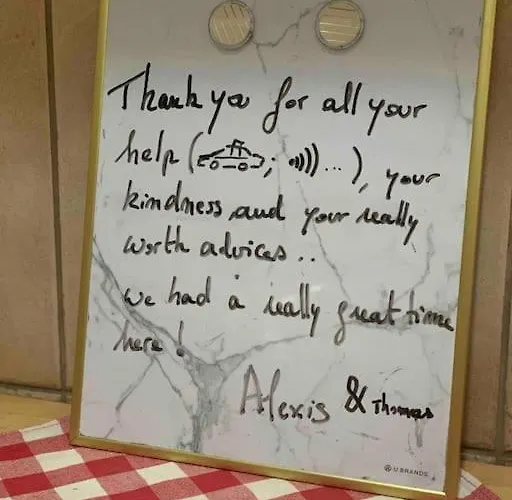 Thank you for all your
help ( ; ...), your
kindness and your really
worth advices..
we had a really great time
here !
Alexis & Thomas
U BRANDS